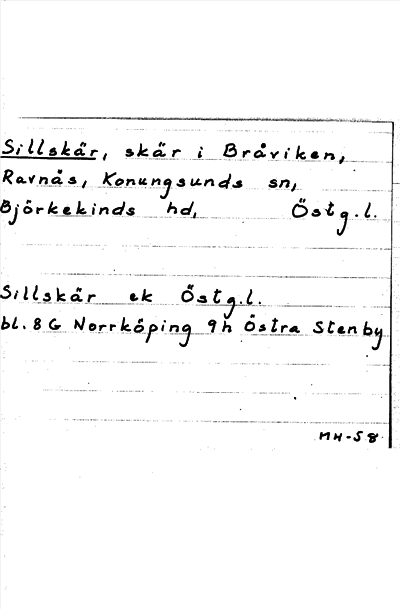 Sillskär, skär i Bråviken,
Ravnås, Konungsunds sn,
Björkekinds hd, Östg.l.
Sillskär ek Östg.l.
bl. 8 G Norrköping 9h Östra Stenby
MH-58